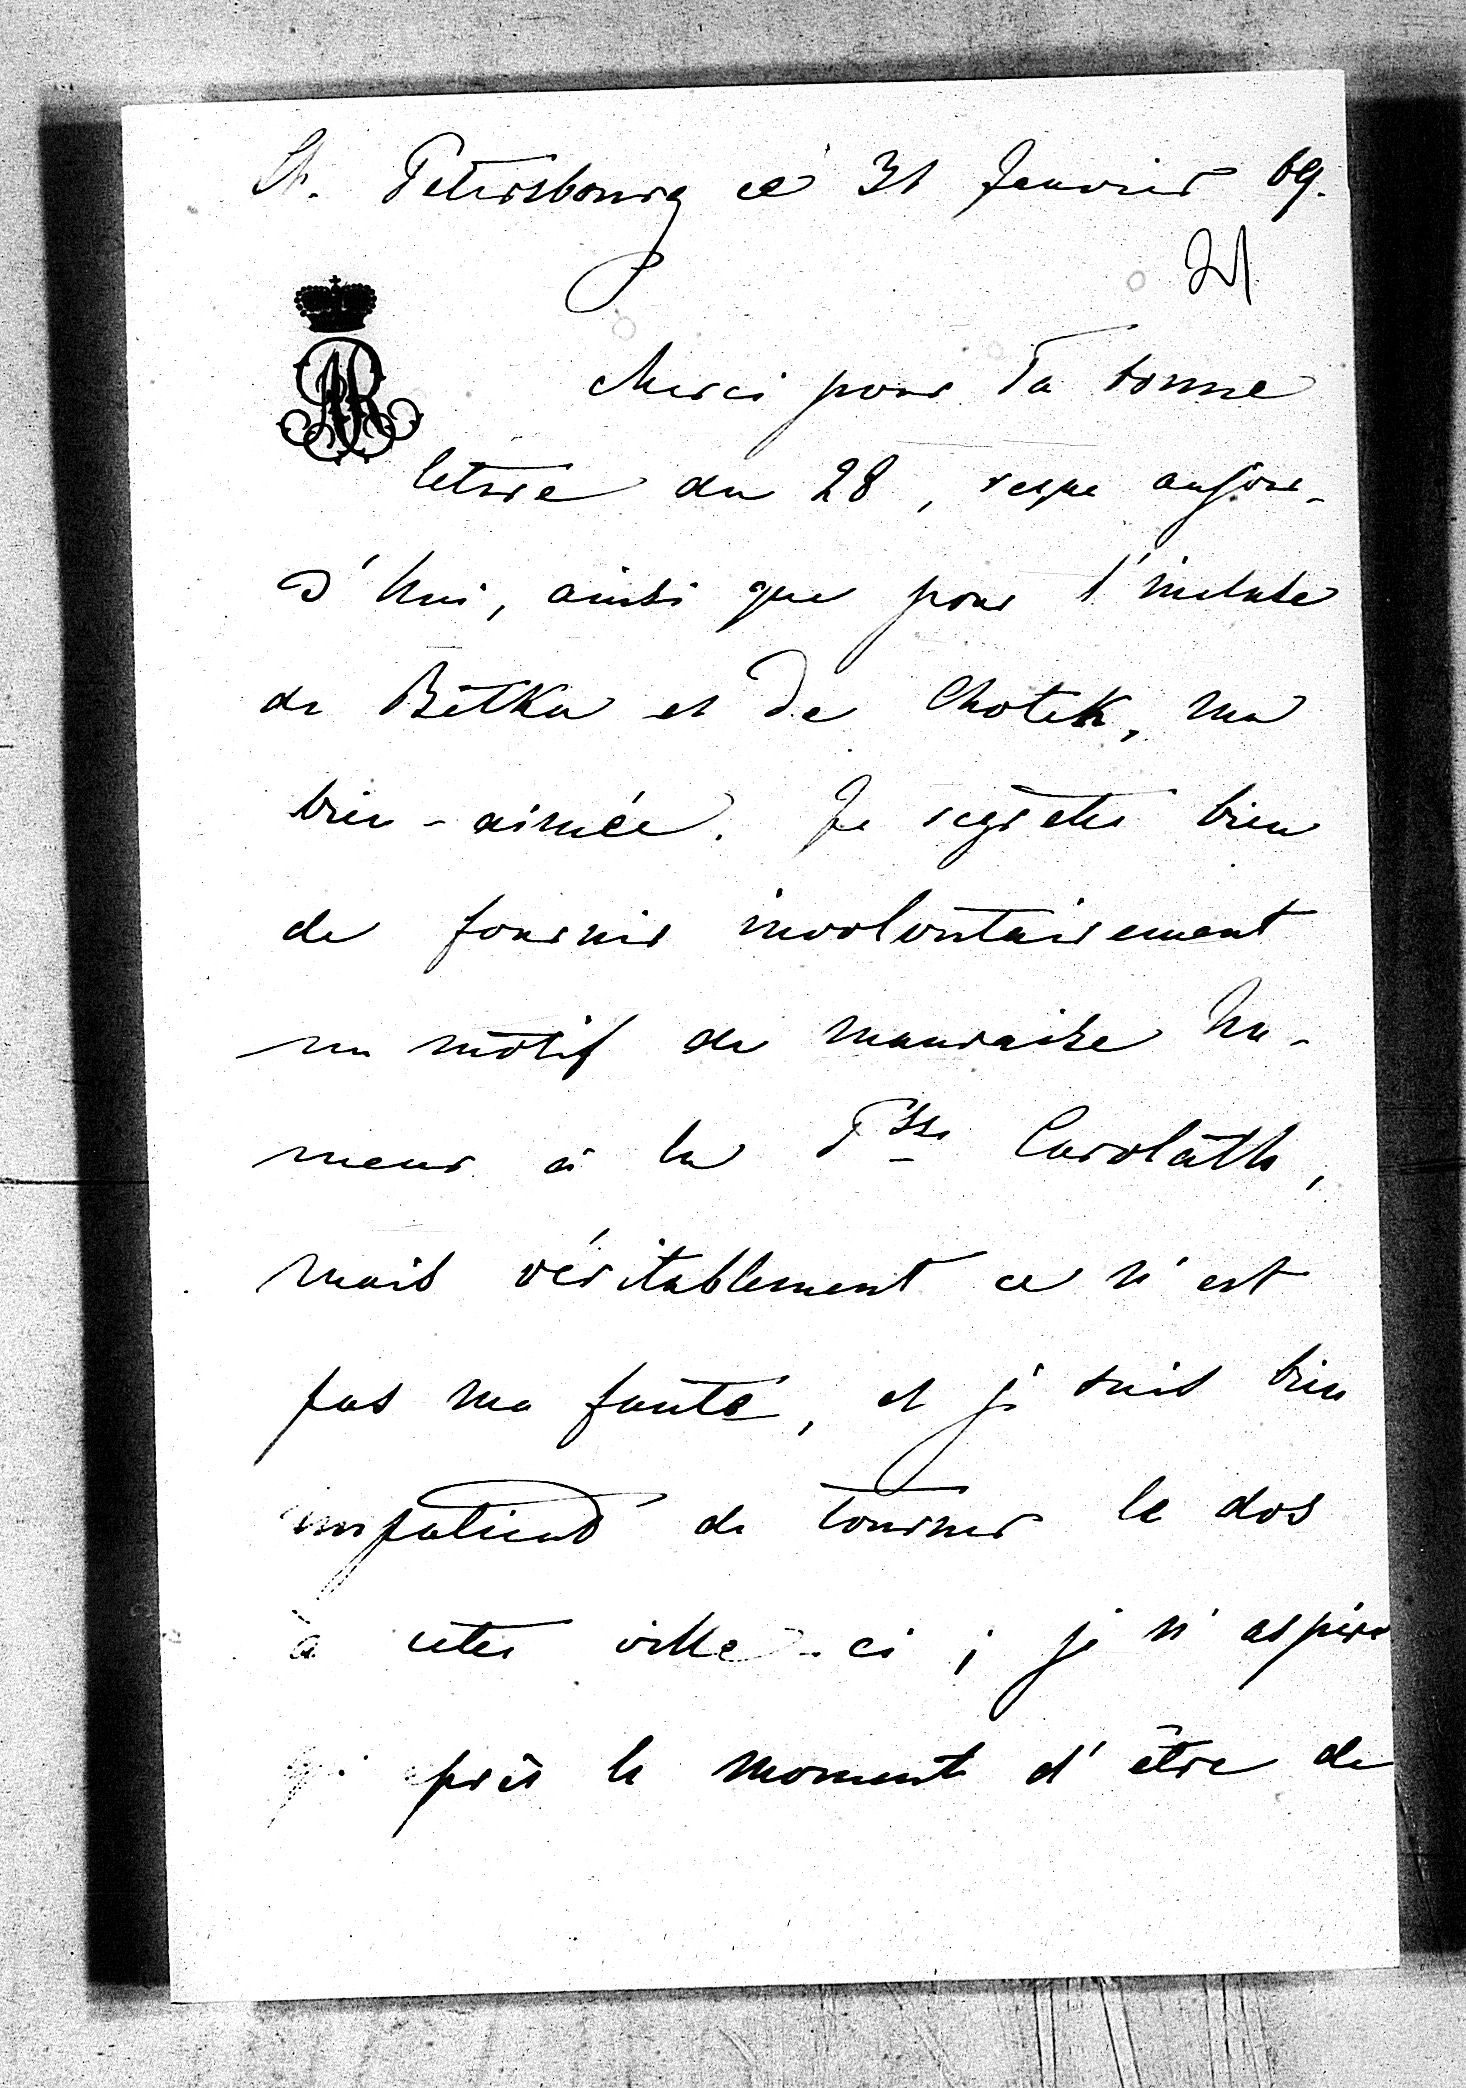 St. Petersbourg ce 31 Janvier 69.
21
AR
Merci pour Ta bonne
lettre du 28, reçue aujour-
d'hui, ainsi que pour l'incluse
de Betka et de Chotek, ma
bien-aimée. Je regrette bien
de fournir involontairement
un motif de mauvaise hu-
meur à la Psse Carolath,
mais véritablement ce n'est
pas ma faute, et je suis bien
impatient de tourner le dos
à cette ville-ci ; je n'aspire
près le moment d'être de